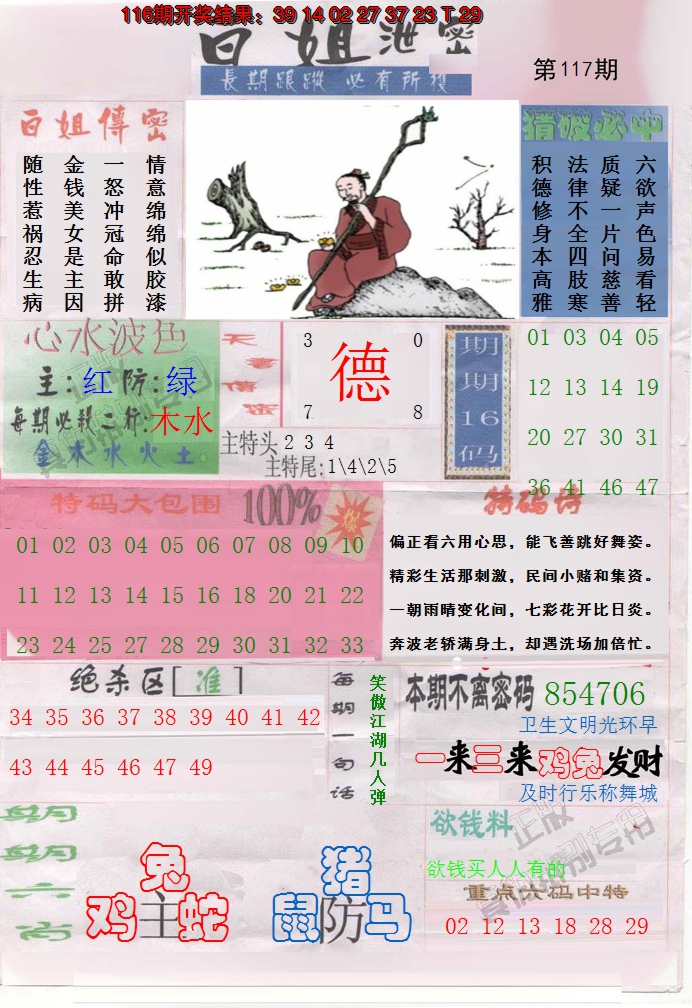 116期开奖结果：39 14 02 27 37 23 T 29
白姐泄密
長期跟蹤 必有所獲
第117期
白姐傳密
情意绵绵似胶漆
一怒冲冠命敢拼
金钱美女是主因
随性惹祸忍生病
猜波必中
六欲声色易看轻
质疑一片问慈善
法律不全四肢寒
积德修身本高雅
心水波色
主:红 防:绿
每期必殺二行:木水
金木水火土
天書信密
3 0
德
7 8
主特头 2 3 4
主特尾:1\4\2\5
期期16码
01 03 04 05
12 13 14 19
20 27 30 31
36 41 46 47
特码大包围 100%
01 02 03 04 05 06 07 08 09 10
11 12 13 14 15 16 18 20 21 22
23 24 25 27 28 29 30 31 32 33
特码诗
偏正看六用心思，能飞善跳好舞姿。
精彩生活那刺激，民间小赌和集资。
一朝雨晴变化间，七彩花开比日炎。
奔波老轿满身土，却遇洗场加倍忙。
绝杀区[准]
34 35 36 37 38 39 40 41 42
43 44 45 46 47 49
每期一句话
笑傲江湖几人弹
本期不离密码 854706
卫生文明光环早
一来三来鸡兔发财
及时行乐称舞城
每期六肖
兔
鸡主蛇
猪
鼠防马
欲钱料
欲钱买人人有的
重点六码中特
02 12 13 18 28 29